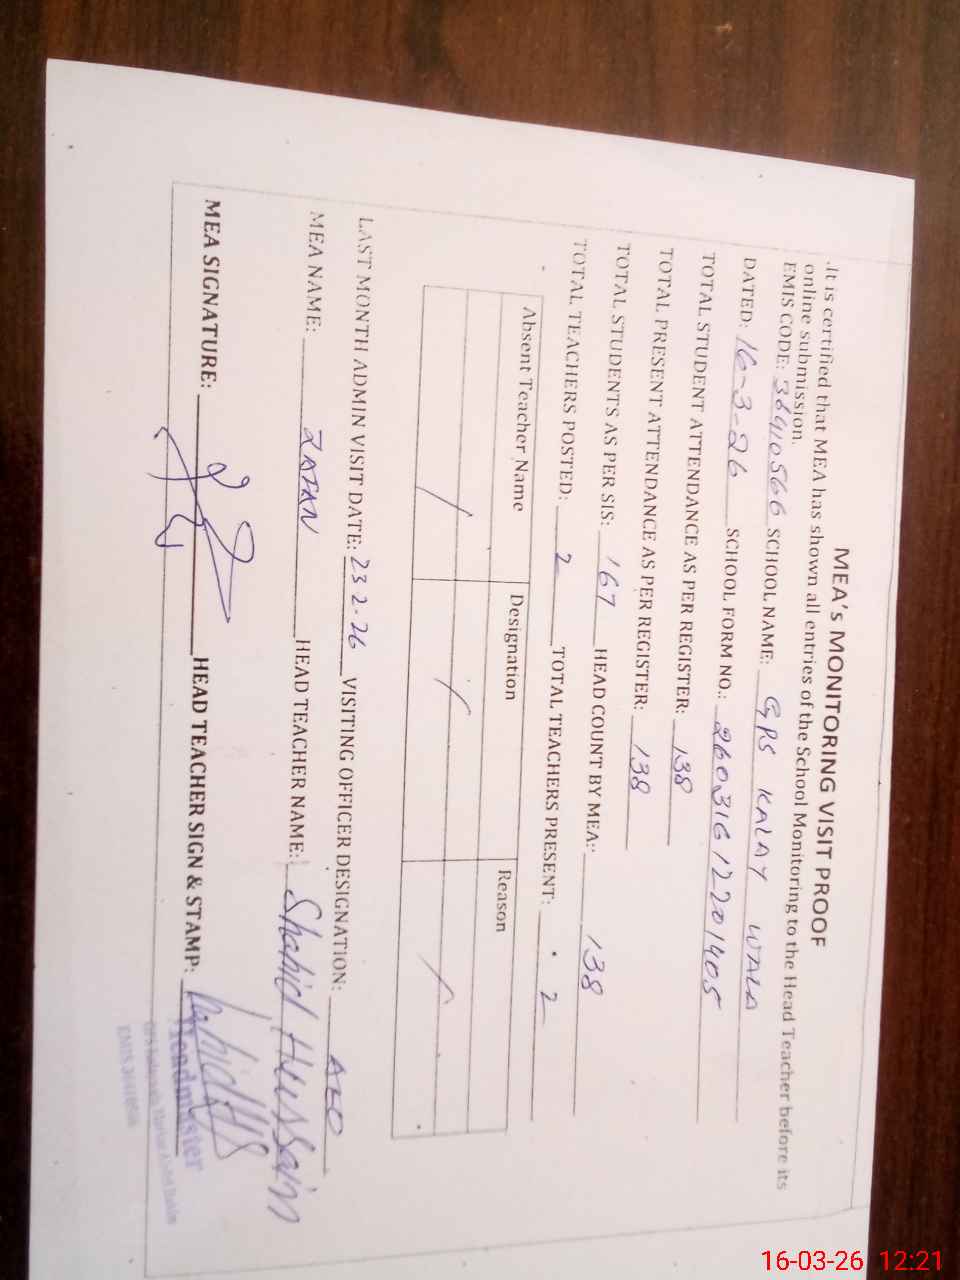 MEA's MONITORING VISIT PROOF
.It is certified that MEA has shown all entries of the School Monitoring to the Head Teacher before its
online submission.
EMIS CODE: 36410566 SCHOOL NAME: GPS KALAY WALA
DATED: 16-3-26 SCHOOL FORM NO.: 26031612201405
TOTAL STUDENT ATTENDANCE AS PER REGISTER: 138
TOTAL PRESENT ATTENDANCE AS PER REGISTER: 138
TOTAL STUDENTS AS PER SIS: 167 HEAD COUNT BY MEA: 138
TOTAL TEACHERS POSTED: 2 TOTAL TEACHERS PRESENT: 2
Absent Teacher Name Designation Reason
LAST MONTH ADMIN VISIT DATE: 23 2-26 VISITING OFFICER DESIGNATION: AEO
MEA NAME: HEAD TEACHER NAME: Shahid Hussain
MEA SIGNATURE: HEAD TEACHER SIGN & STAMP:
Headmaster
16-03-26 12:21